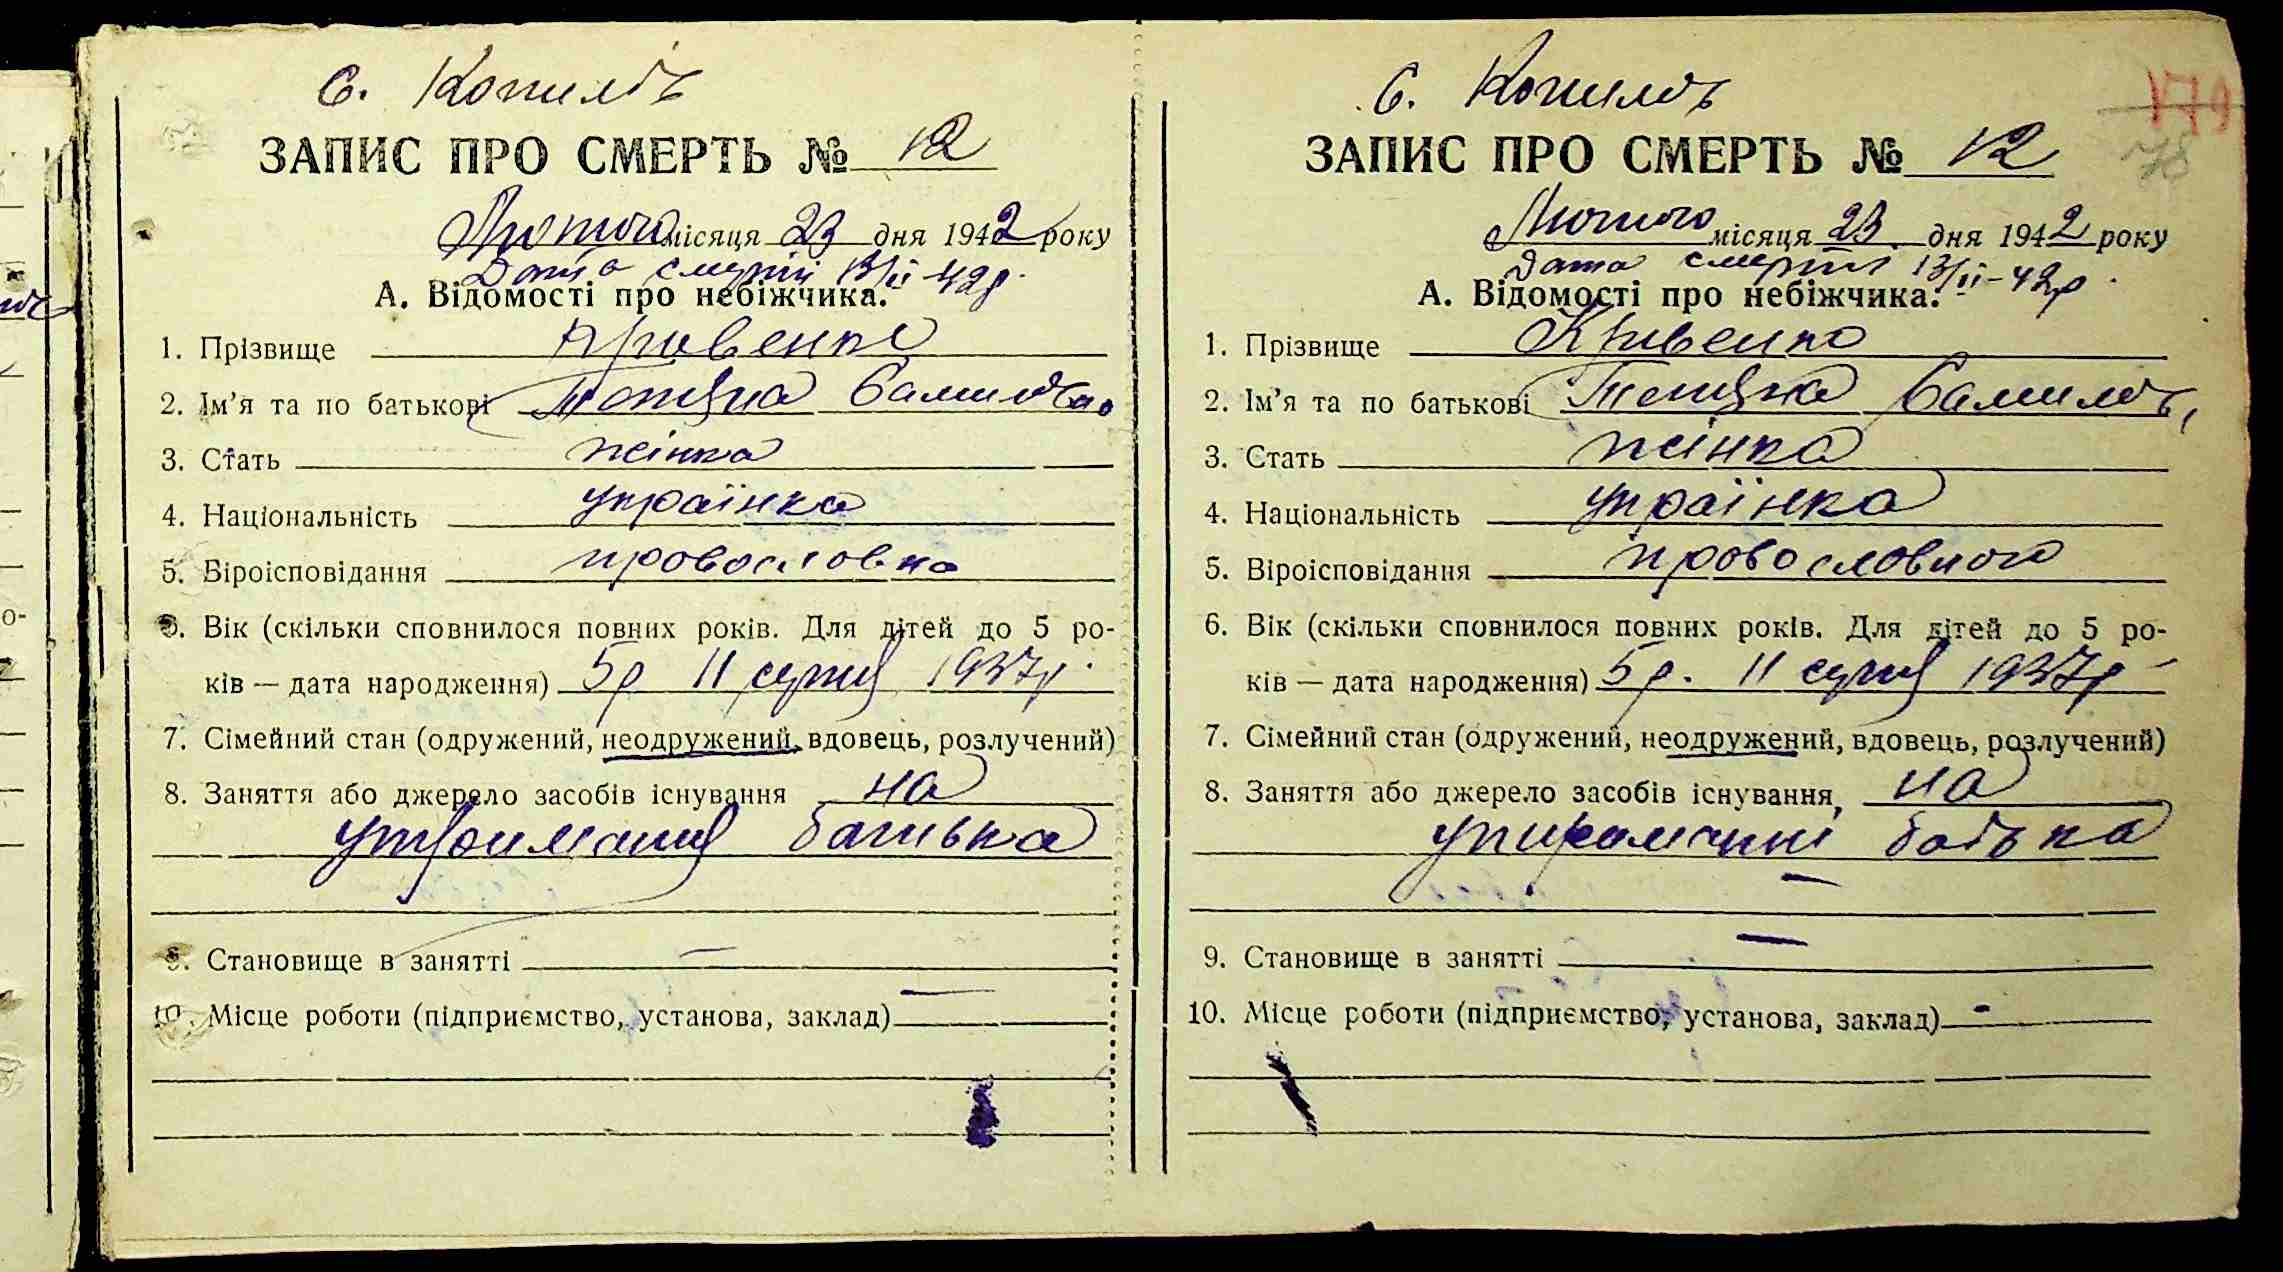 с. Копилів
ЗАПИС ПРО СМЕРТЬ № 12
Лютого місяця 23 дня 1942 року
Дата смерті 13/II-42р.
А. Відомості про небіжчика.
1. Прізвище Кривенко
2. Ім'я та по батькові Самилівна
3. Стать жінка
4. Національність українка
5. Віроісповідання провославна
6. Вік (скільки сповнилося повних років. Для дітей до 5 ро-
ків — дата народження) 5р 11 серпня 1937р.
7. Сімейний стан (одружений, неодружений, вдовець, розлучений)
8. Заняття або джерело засобів існування на
утримання батька
9. Становище в занятті —
10. Місце роботи (підприємство, установа, заклад) —
с. Копилів
179
78
ЗАПИС ПРО СМЕРТЬ № 12
Лютого місяця 23 дня 1942 року
Дата смерті 13/II-42р.
А. Відомості про небіжчика.
1. Прізвище Кривенко
2. Ім'я та по батькові Самилів,
3. Стать жінка
4. Національність українка
5. Віроісповідання провославного
6. Вік (скільки сповнилося повних років. Для дітей до 5 ро-
ків — дата народження) 5р. 11 серпня 1937р
7. Сімейний стан (одружений, неодружений, вдовець, розлучений)
8. Заняття або джерело засобів існування, на
утриманні батька
—
9. Становище в занятті —
10. Місце роботи (підприємство, установа, заклад) -